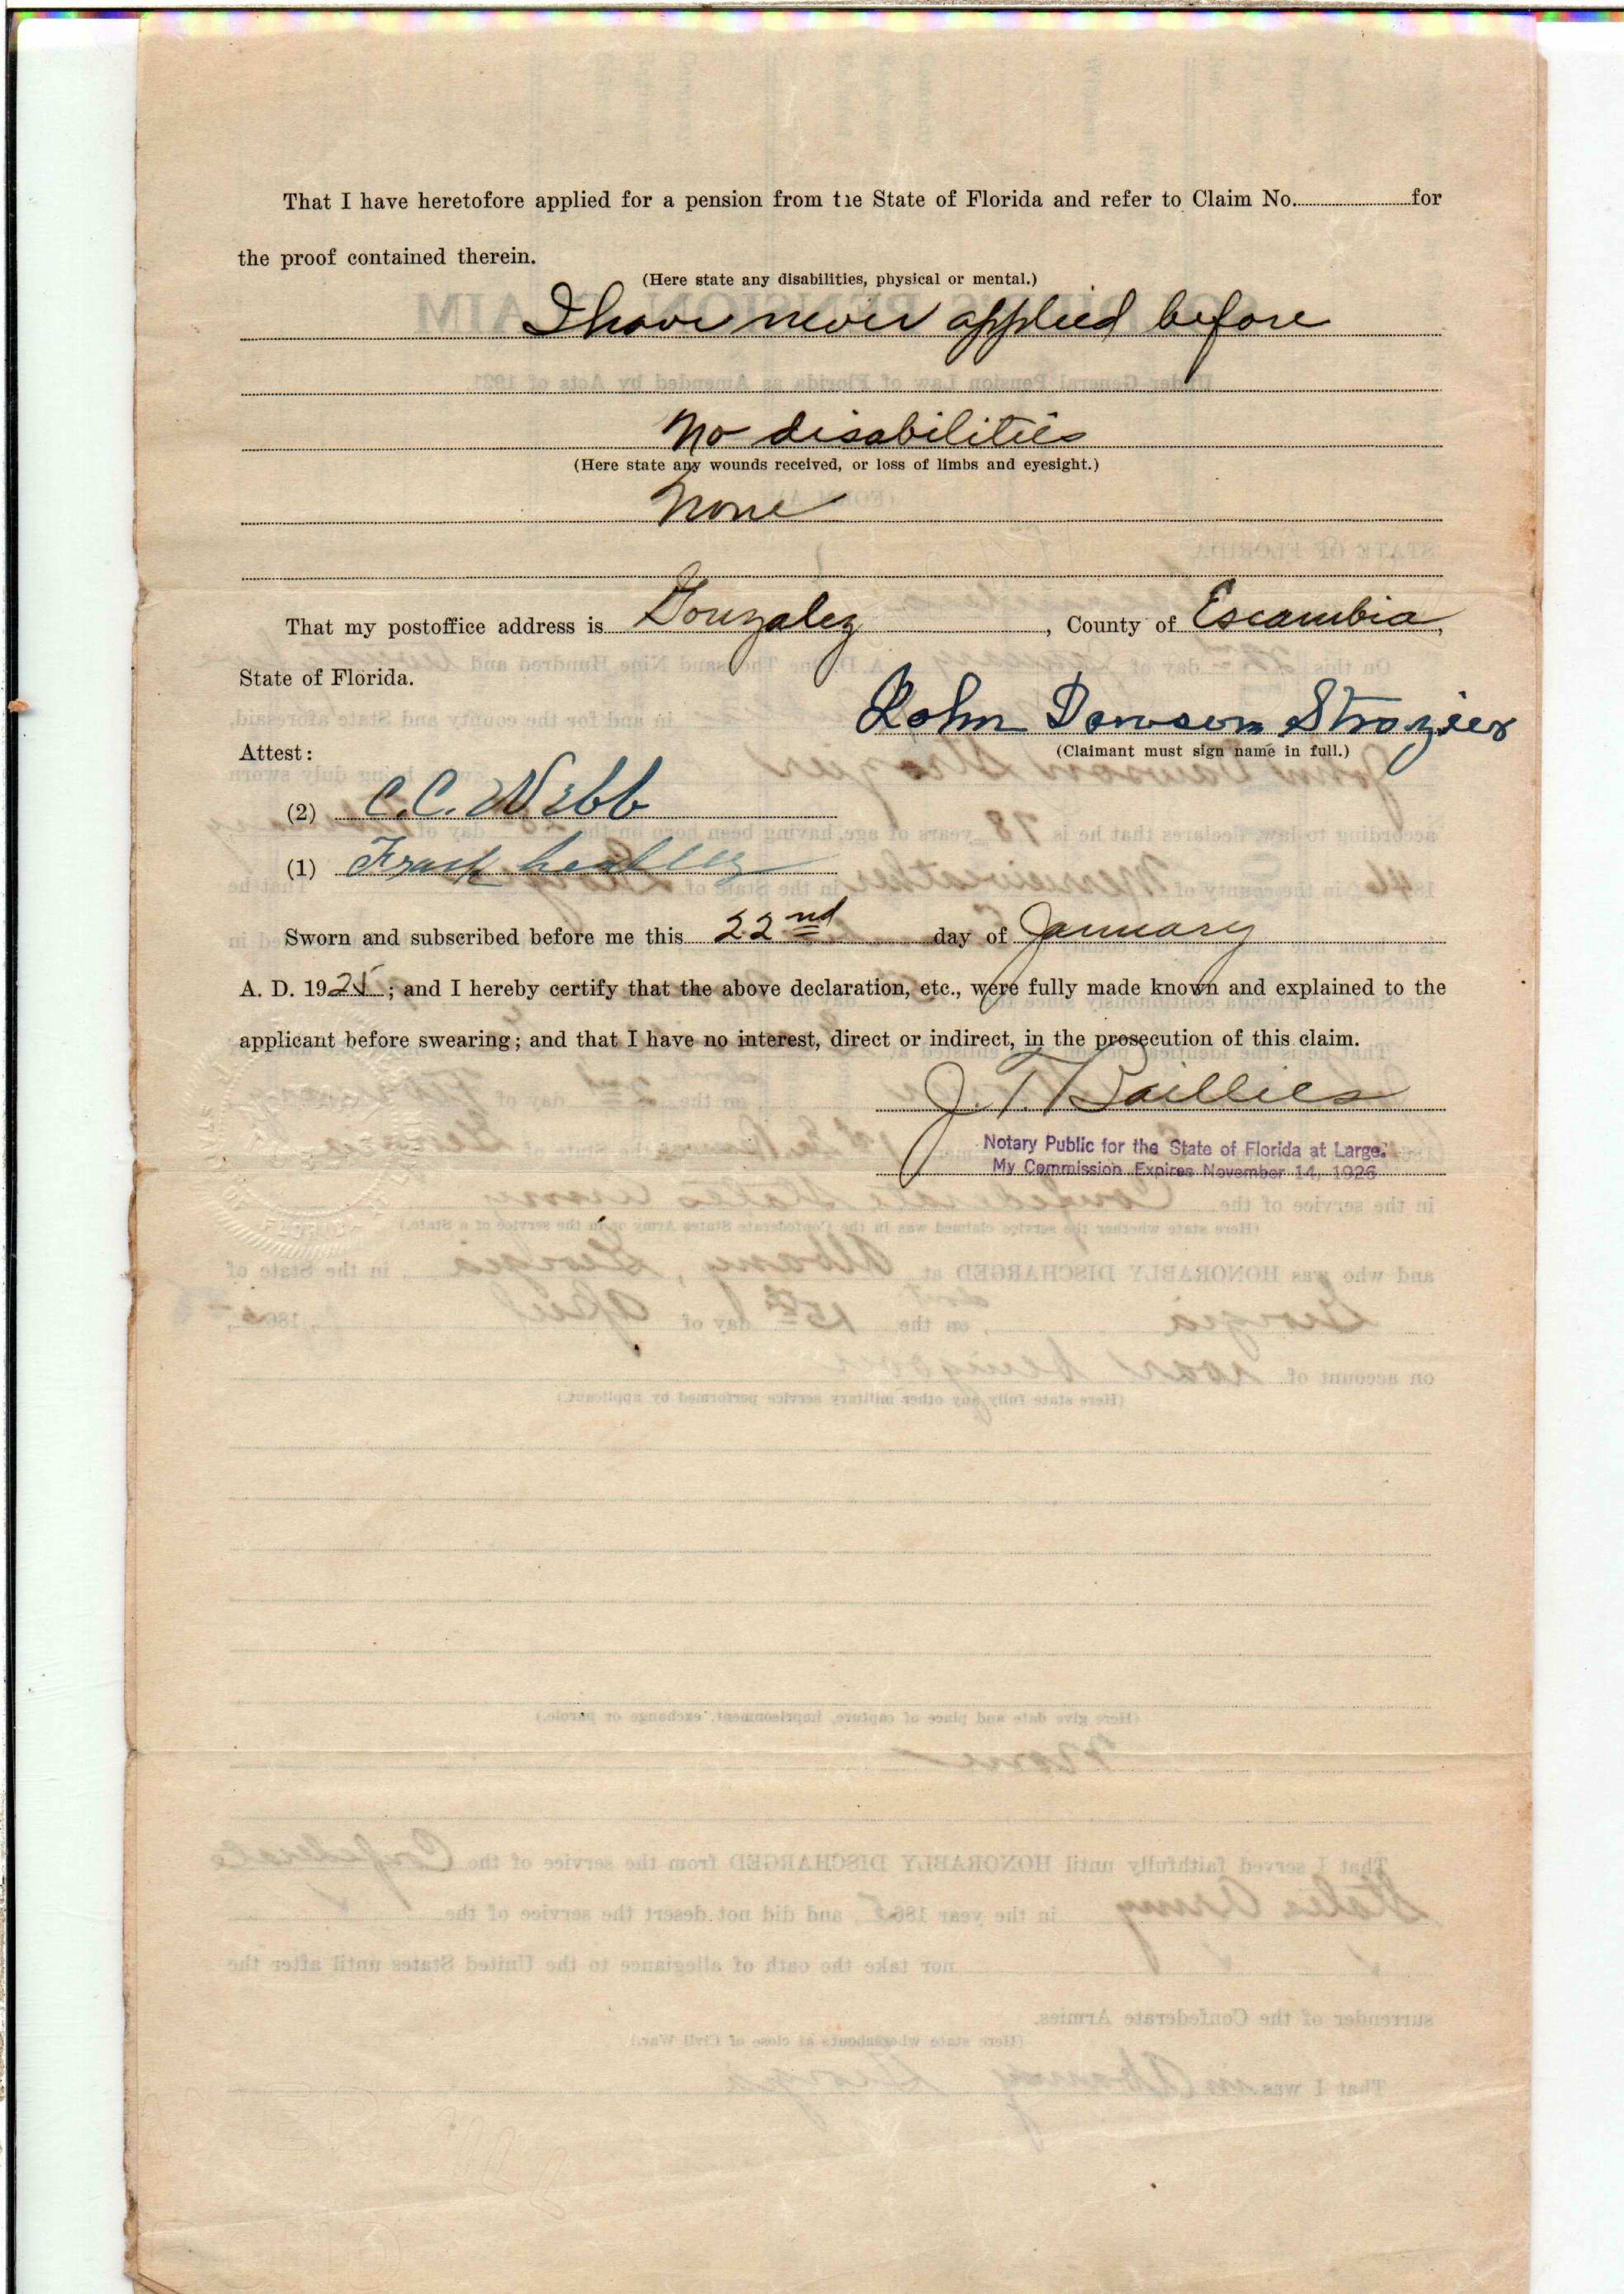 That I have heretofore applied for a pension from the State of Florida and refer to Claim No. for
the proof contained therein.
(Here state any disabilities, physical or mental.)
I have never applied before
No disabilities
(Here state any wounds received, or loss of limbs and eyesight.)
None
That my postoffice address is Gonzalez, County of Escambia,
State of Florida.
John Dawson Strozier
Attest: (Claimant must sign name in full.)
(2) C.C. Webb
(1) Frank
Sworn and subscribed before me this 22nd day of January
A. D. 1925; and I hereby certify that the above declaration, etc., were fully made known and explained to the
applicant before swearing; and that I have no interest, direct or indirect, in the prosecution of this claim.
J. T. Baillies
Notary Public for the State of Florida at Large.
My Commission Expires November 14, 1926